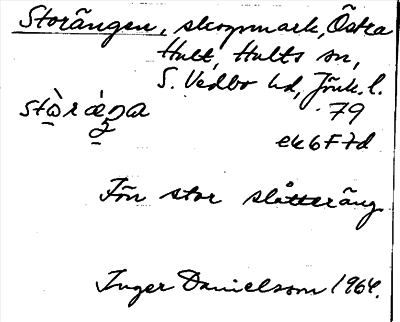 Storängen, skogsmark, Östra
Hult, Hults sn,
S. Vedbo hd, Jönk. l.
79
ek6F7d
Fön stor slåtteräng
Inger Danielsson 1964.